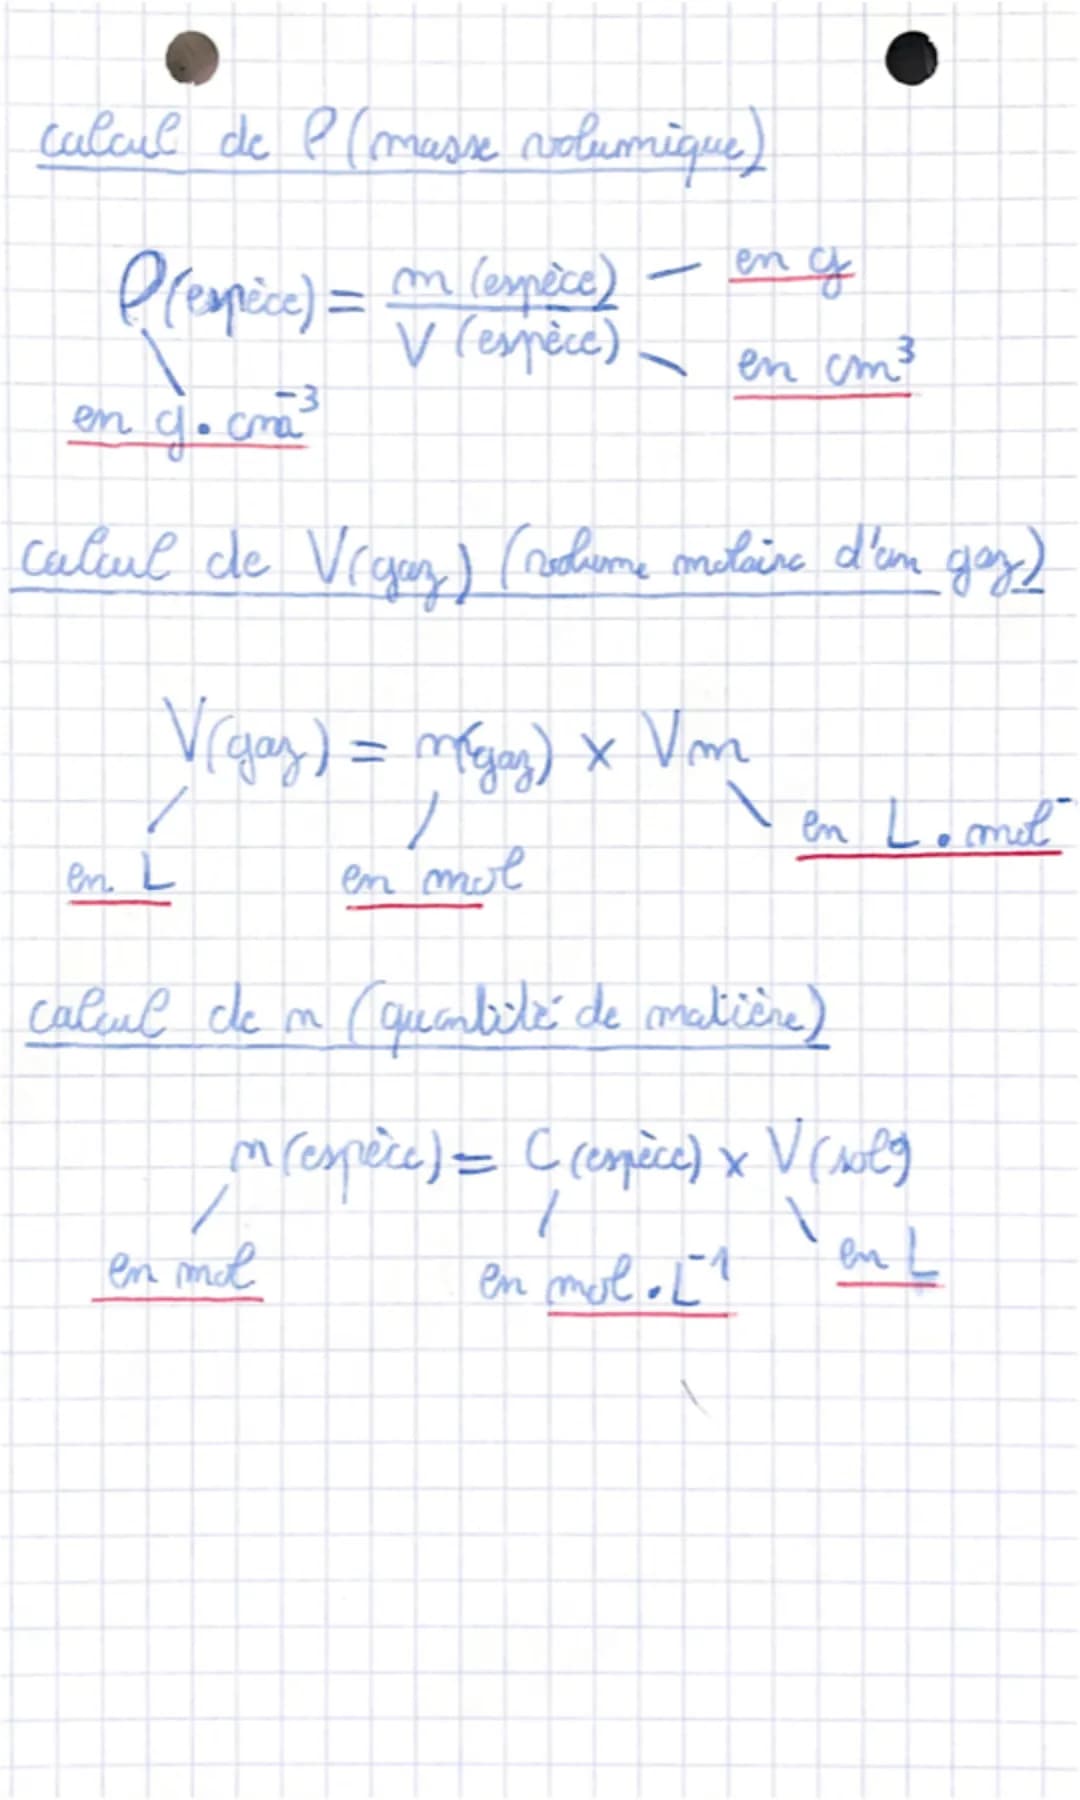 calcul de ρ (masse volumique)
ρ(espèce) = m (espèce) / V (espèce)
en g
en cm³
en g . cm⁻³
calcul de V(gaz) (volume molaire d'un gaz)
V(gaz) = n(gaz) × Vm
en L
en mol
en L . mol⁻
calcul de n (quantité de matière)
n(espèce) = C (espèce) × V(sol)
en mol
en mol . L⁻¹
en L